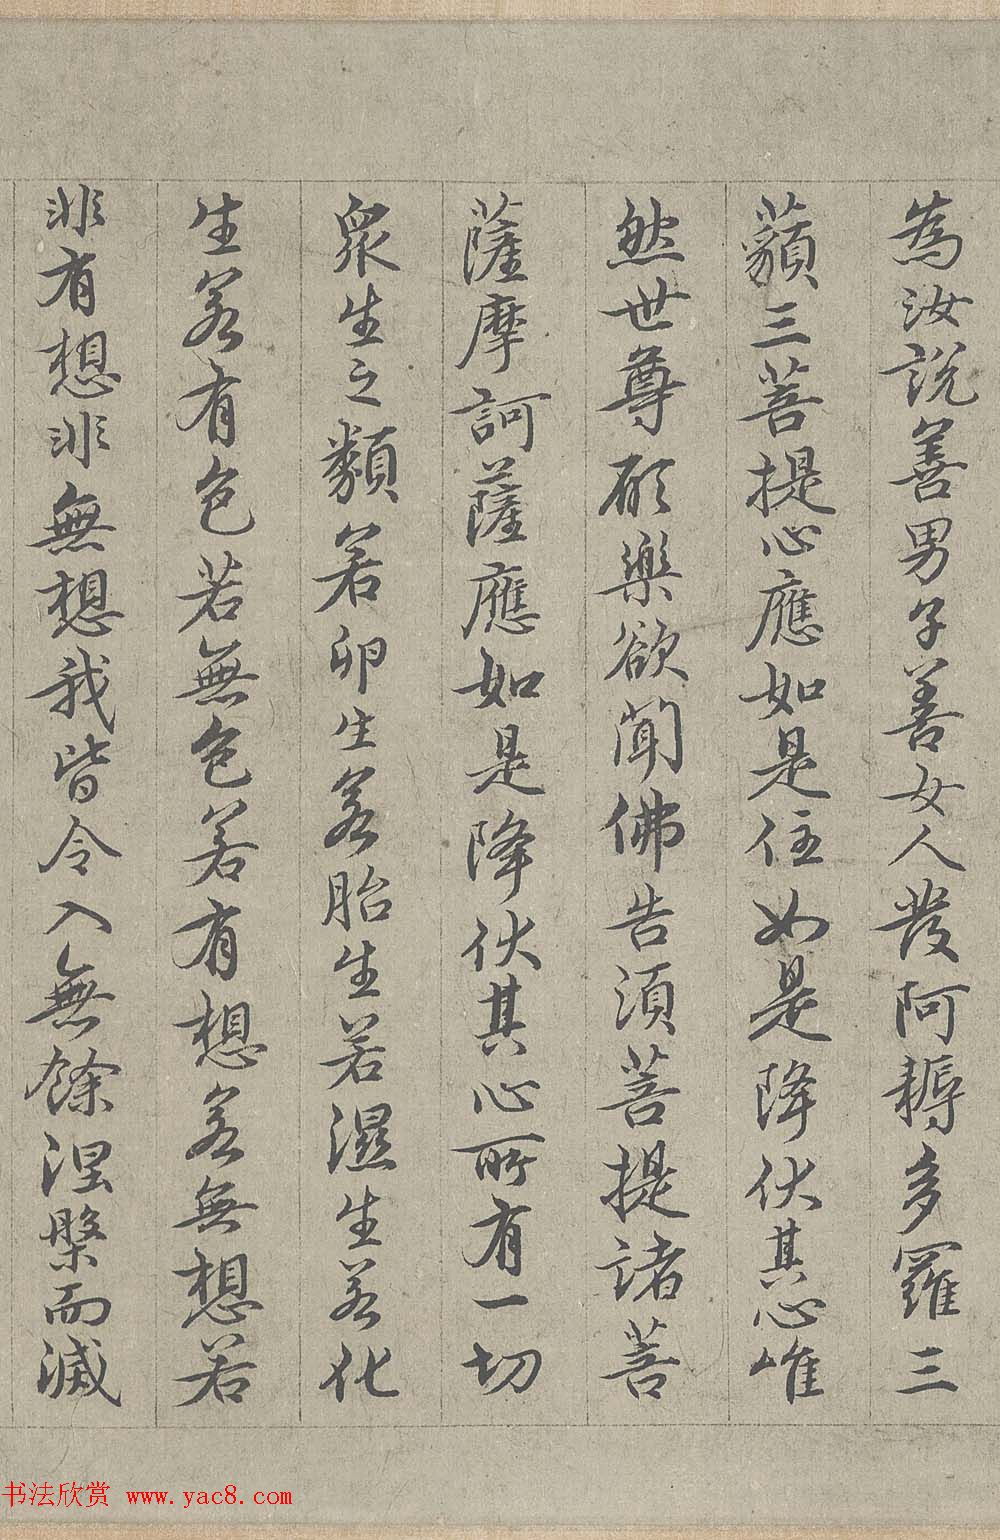 為汝說善男子善女人發阿耨多羅三
藐三菩提心應如是住如是降伏其心唯
然世尊願樂欲聞佛告須菩提諸菩
薩摩訶薩應如是降伏其心所有一切
眾生之類若卵生若胎生若濕生若化
生若有色若無色若有想若無想若
非有想非無想我皆令入無餘涅槃而滅
书法欣赏 www.yac8.com